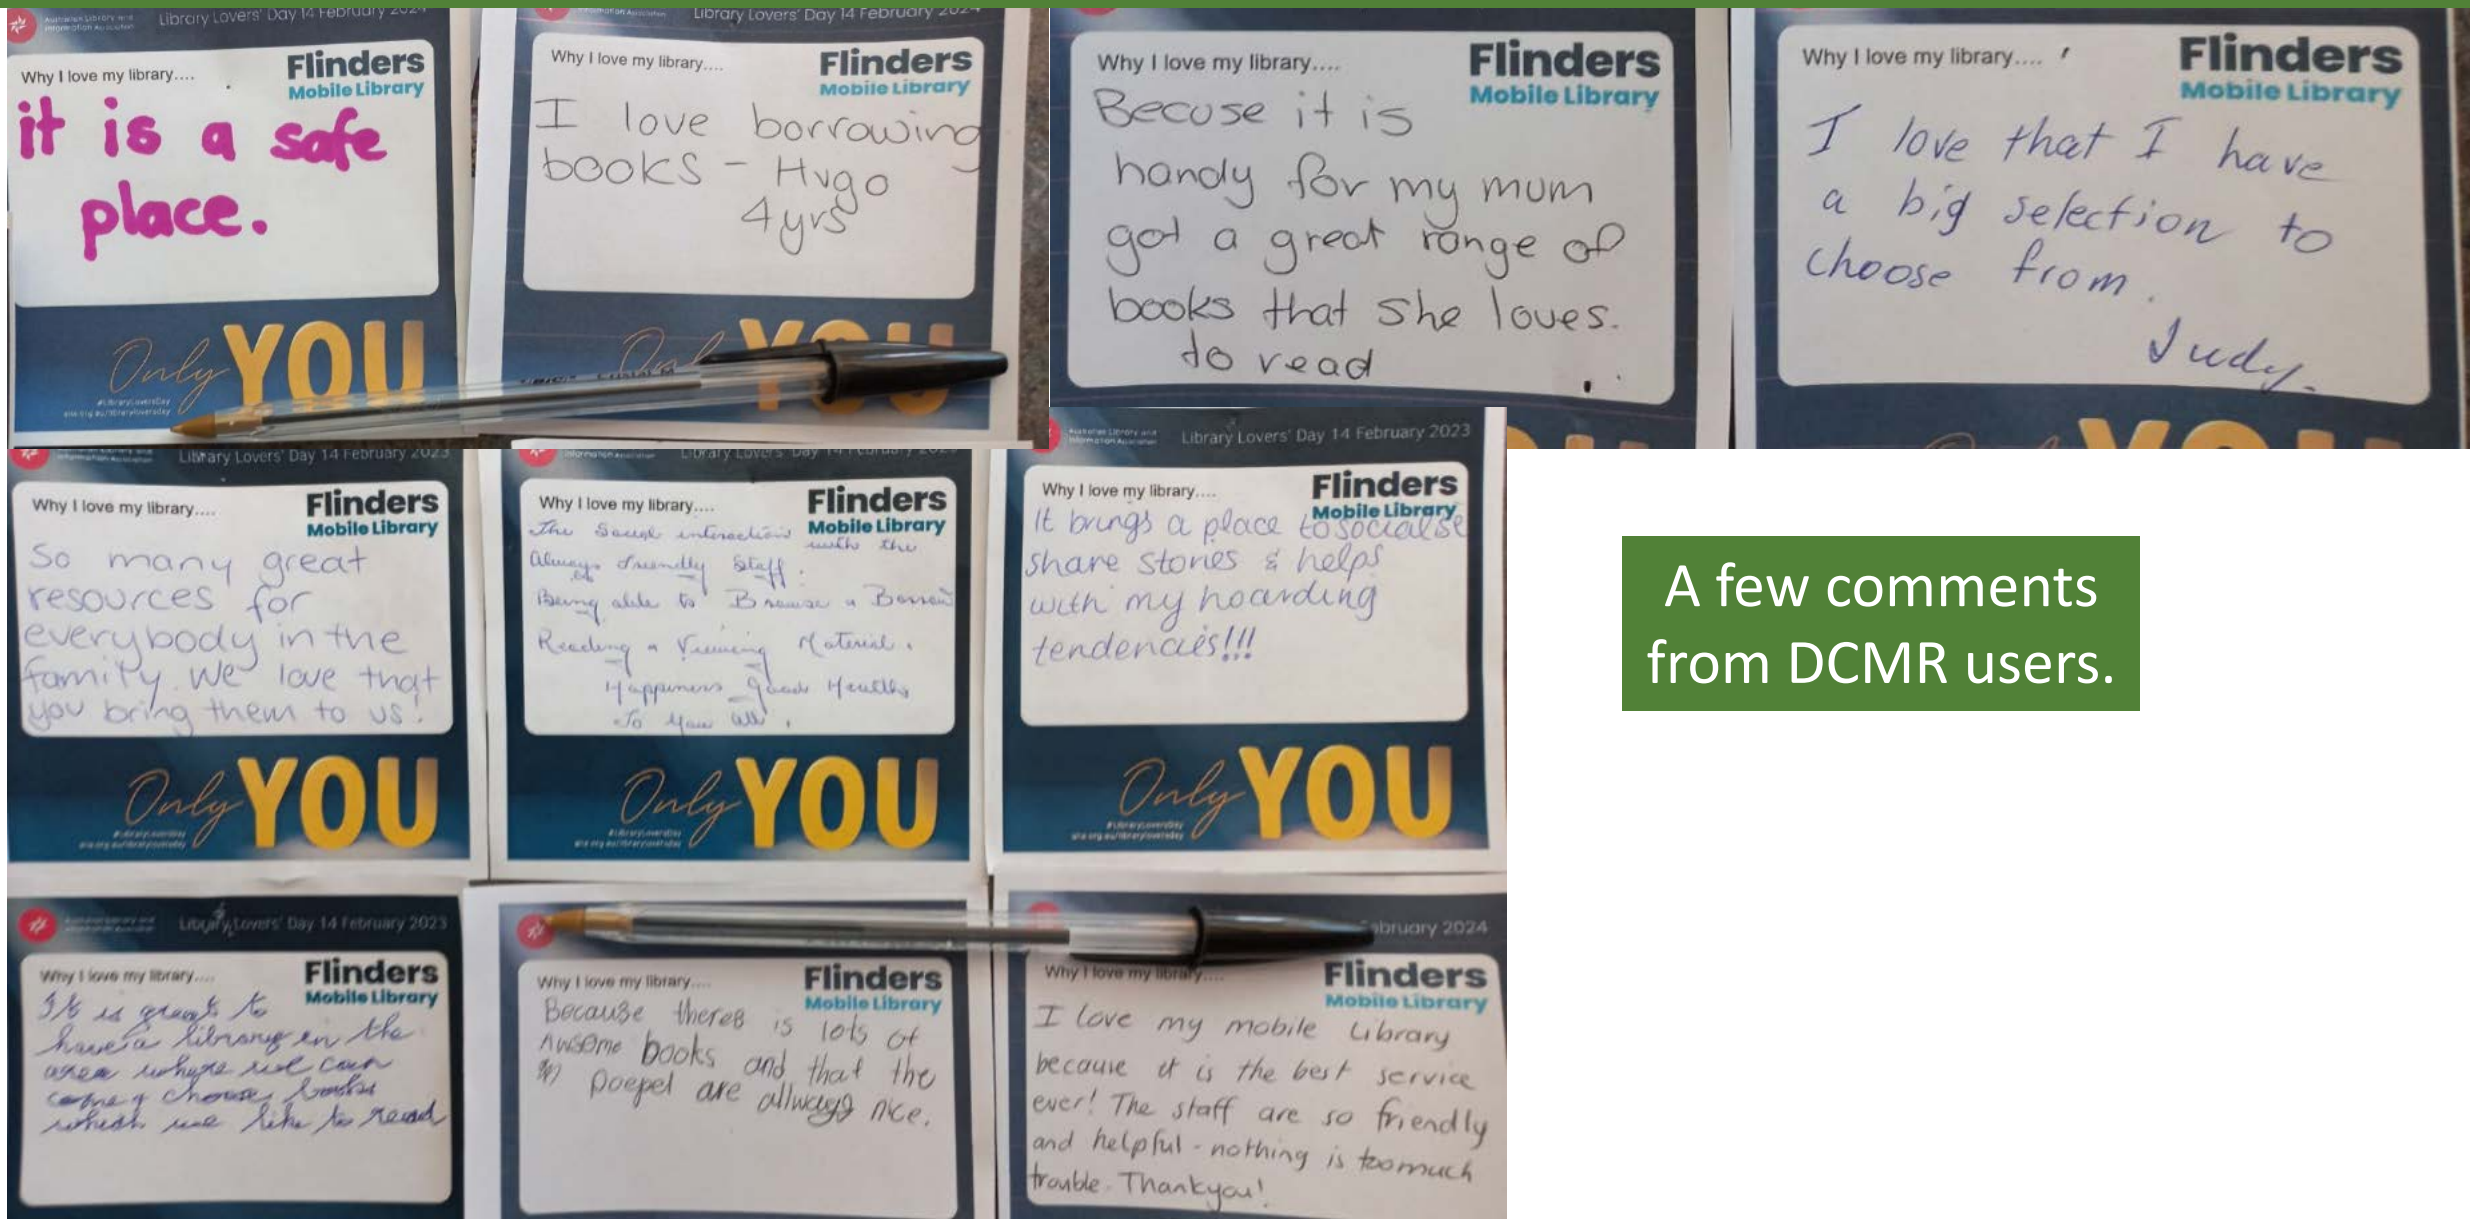 Library Lovers' Day 14 February 2024
Why I love my library....
Flinders
Mobile Library
it is a safe
place.
Only YOU
#LibraryLoversDay
Library Lovers' Day 14 February 2024
Why I love my library....
Flinders
Mobile Library
I love borrowing
books - Hugo
4yrs
YOU
Why I love my library....
Flinders
Mobile Library
Becuse it is
handy for my mum
got a great range of
books that she loves.
to read
Why I love my library....
Flinders
Mobile Library
I love that I have
a big selection to
choose from.
Judy.
Library Lovers' Day 14 February 2023
Why I love my library....
Flinders
Mobile Library
So many great
resources for
everybody in the
family. We love that
you bring them to us!
Only YOU
Why I love my library....
Flinders
Mobile Library
The Social interaction
with the
Always friendly Staff.
Being able to Browse & Borrow
Reading & Viewing Material.
Happiness Good Health
To You all.
Only YOU
Australian Library and
Information Association
Library Lovers' Day 14 February 2023
Why I love my library....
Flinders
Mobile Library
It brings a place to socialise
share stories & helps
with my hoarding
tendencies!!!
Only YOU
#LibraryLoversDay
Library Lovers' Day 14 February 2023
Why I love my library....
Flinders
Mobile Library
It is great to
have a library in the
area where we can
come & choose books
which we like to read
Why I love my library....
Flinders
Mobile Library
Because theres is lots of
Awsome books and that the
poepel are allways nice.
February 2024
Why I love my library....
Flinders
Mobile Library
I love my mobile Library
because it is the best service
ever! The staff are so friendly
and helpful - nothing is too much
trouble. Thankyou!
A few comments
from DCMR users.